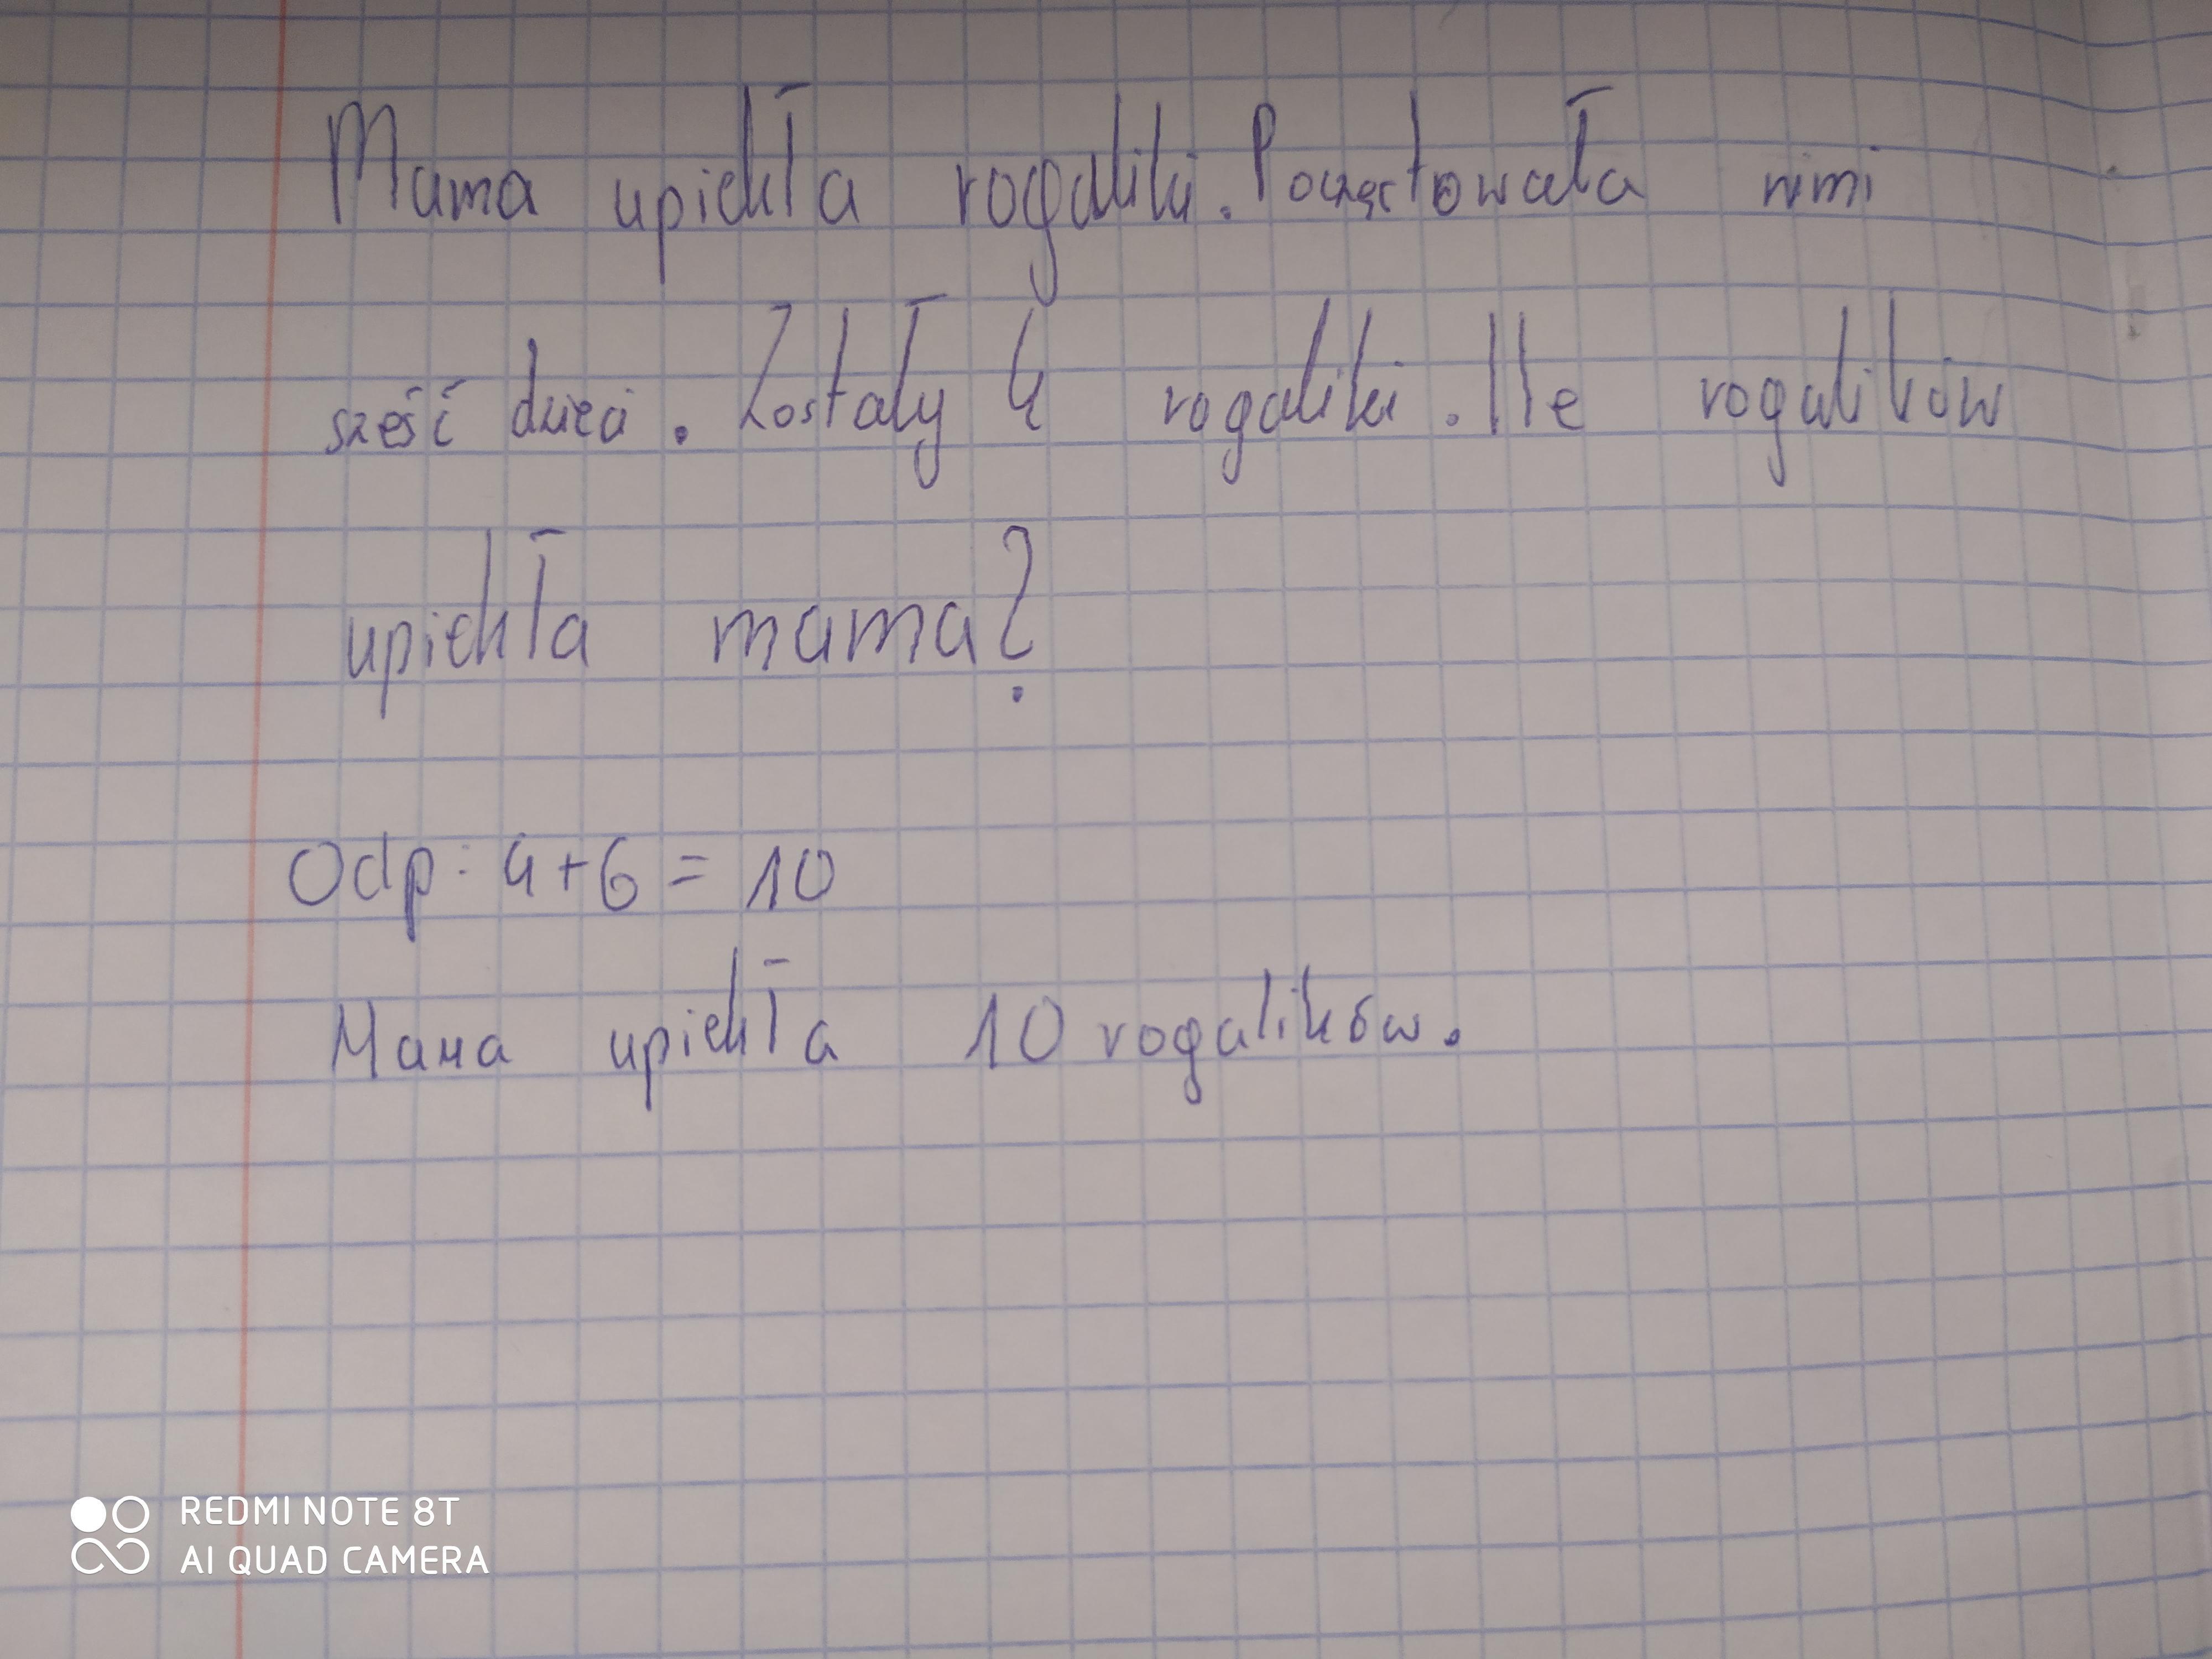 Mama upiekła rogaliki. Poczęstowała nimi
sześć dzieci. Zostały 4 rogaliki. Ile rogalików
upiekła mama?
Odp: 4+6 = 10
Mama upiekła 10 rogalików.
REDMI NOTE 8T
AI QUAD CAMERA